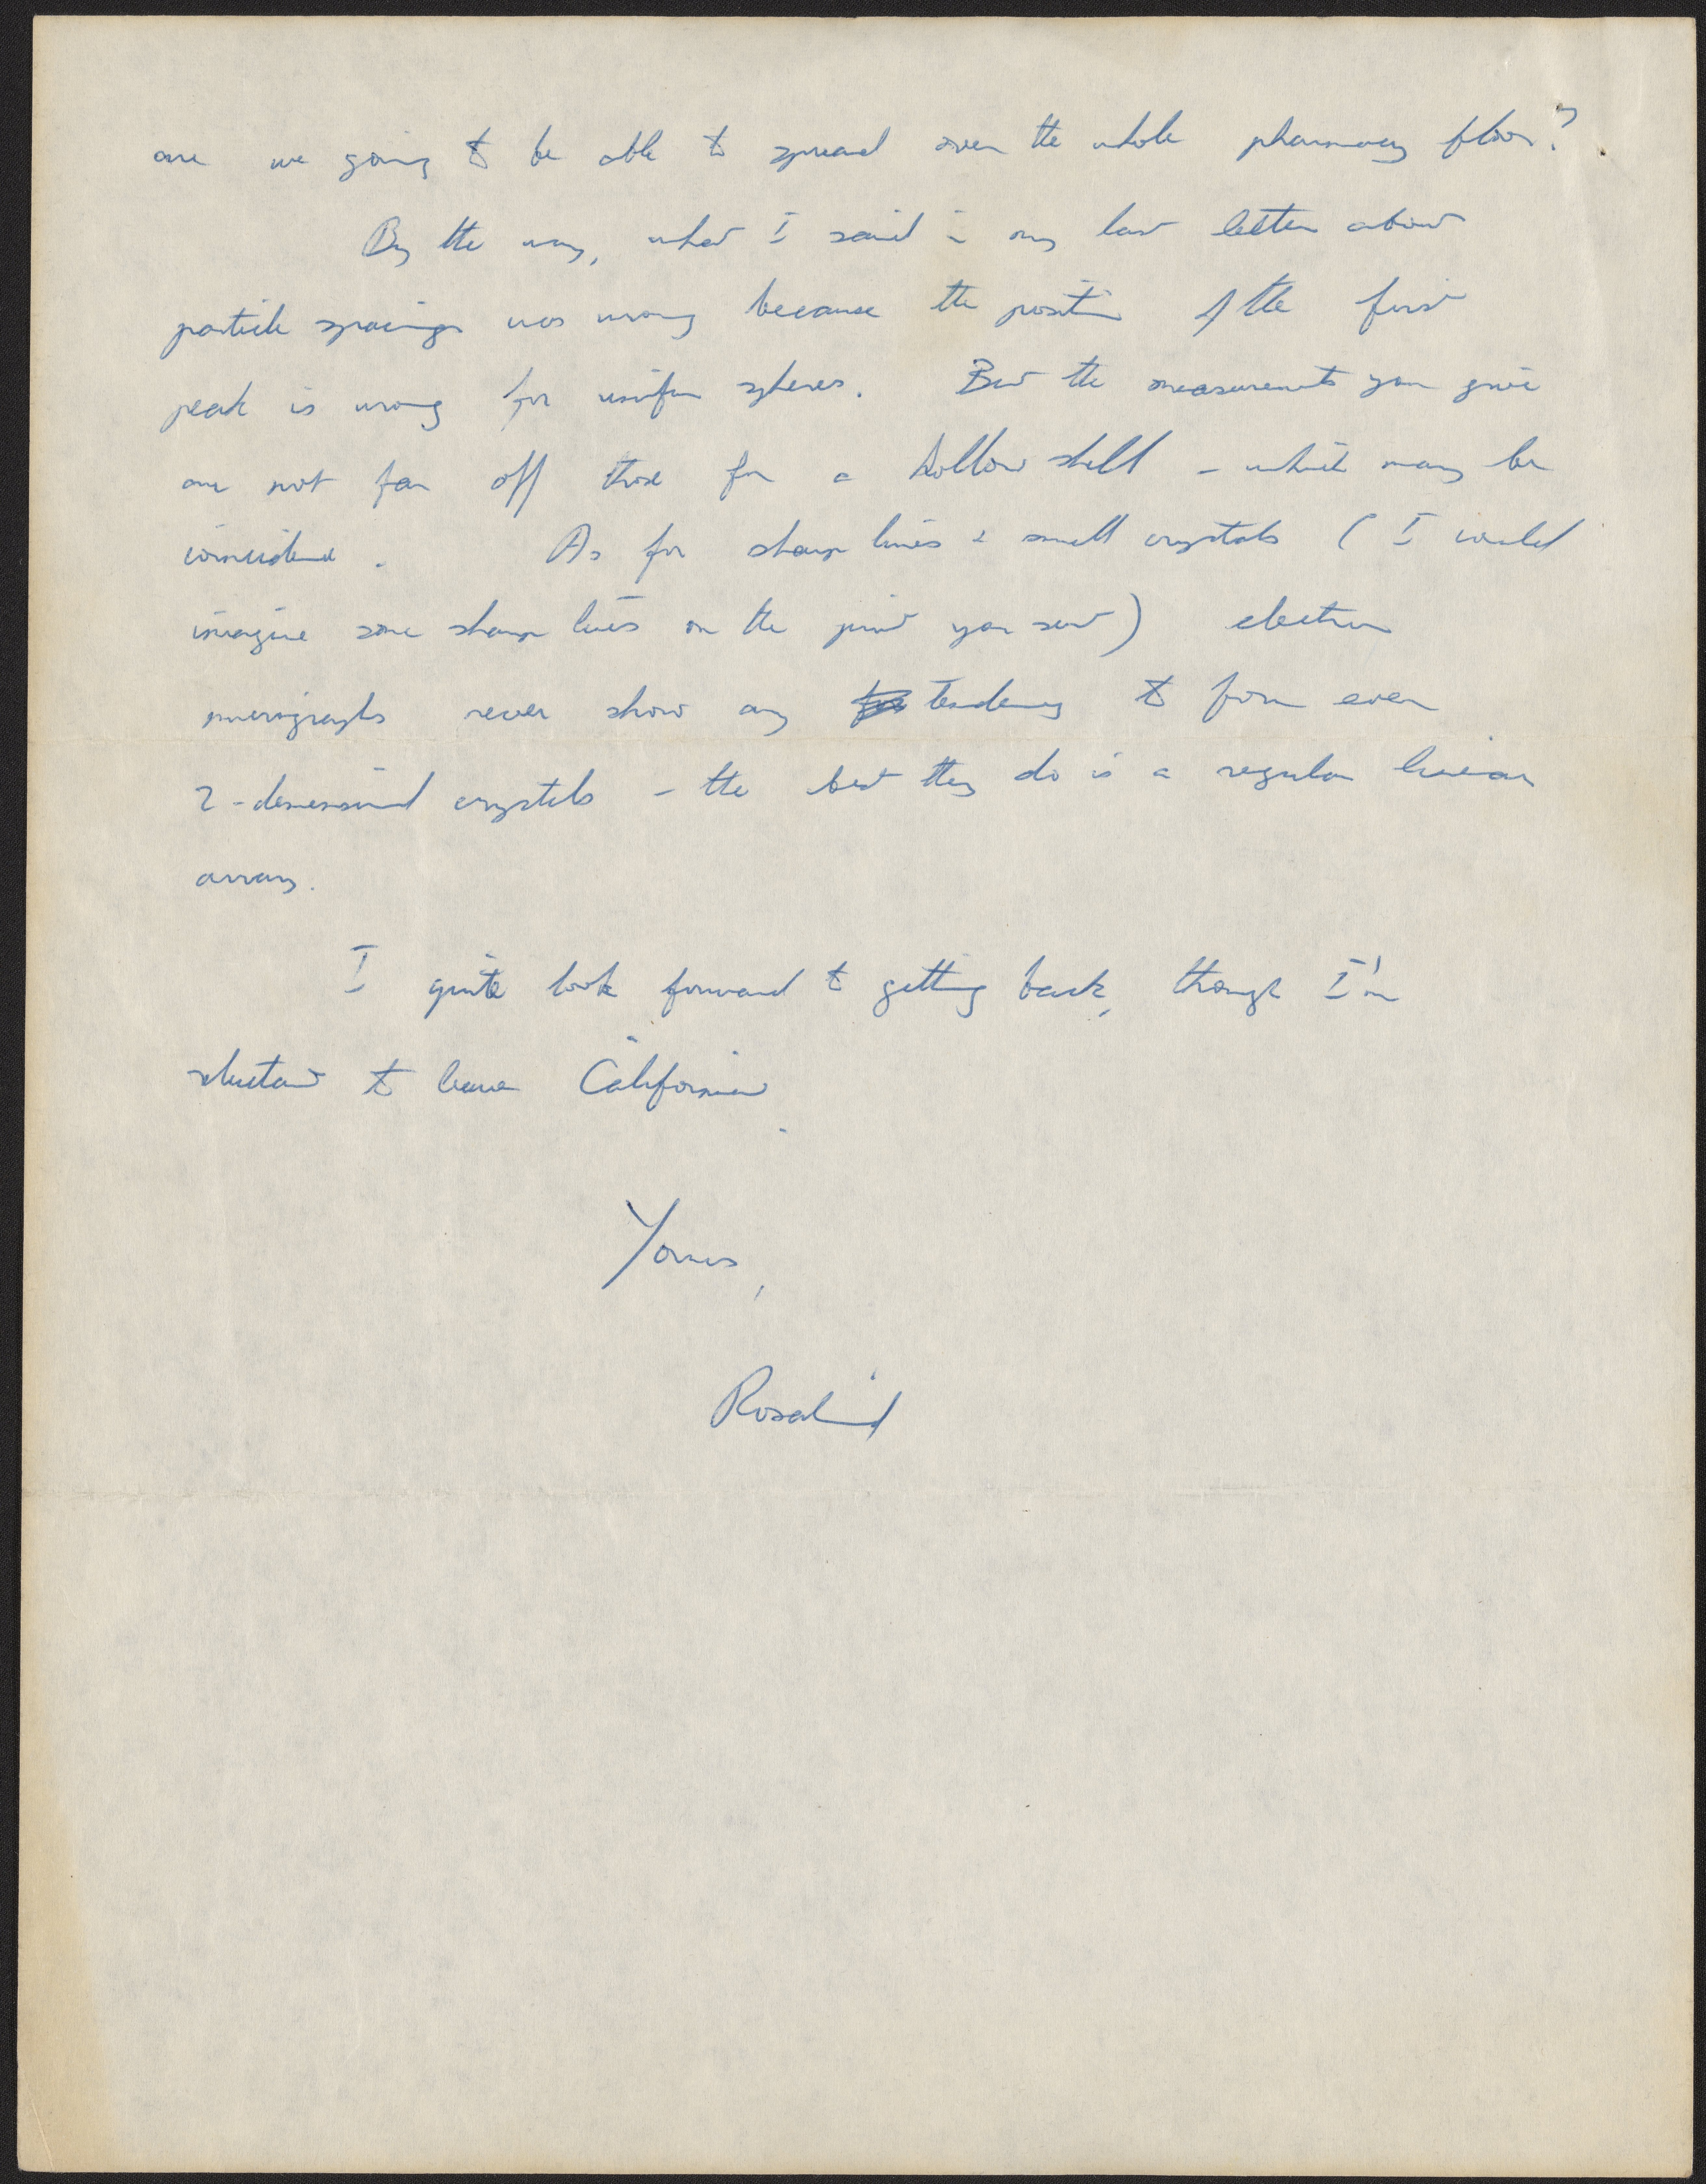 are we going to be able to spread over the whole pharmacy floor?
By the way, what I said in my last letter about
particle spacings was wrong because the position of the first
peak is wrong for uniform spheres. But the measurements you give
are not far off those for a hollow shell – which may be
coincidence. As for sharp lines & small crystals (I could
imagine some sharp lines on the print you sent) electron
micrographs never show any tendency to form even
2-dimensional crystals – the best they do is a regular linear
array.
I quite look forward to getting back, though I'm
reluctant to leave California.
Yours,
Rosalind